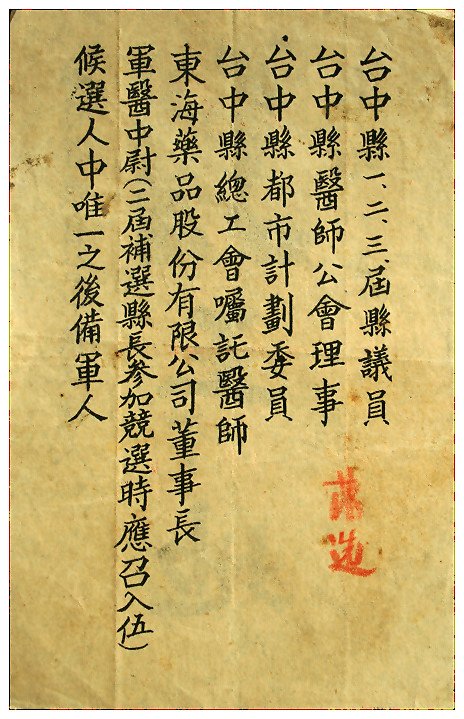 台中縣一、二、三、屆縣議員
台中縣醫師公會理事
台中縣都市計劃委員
台中縣總工會囑託醫師
東海藥品股份有限公司董事長
軍醫中尉(二屆補選縣長參加競選時應召入伍)
候選人中唯一之後備軍人